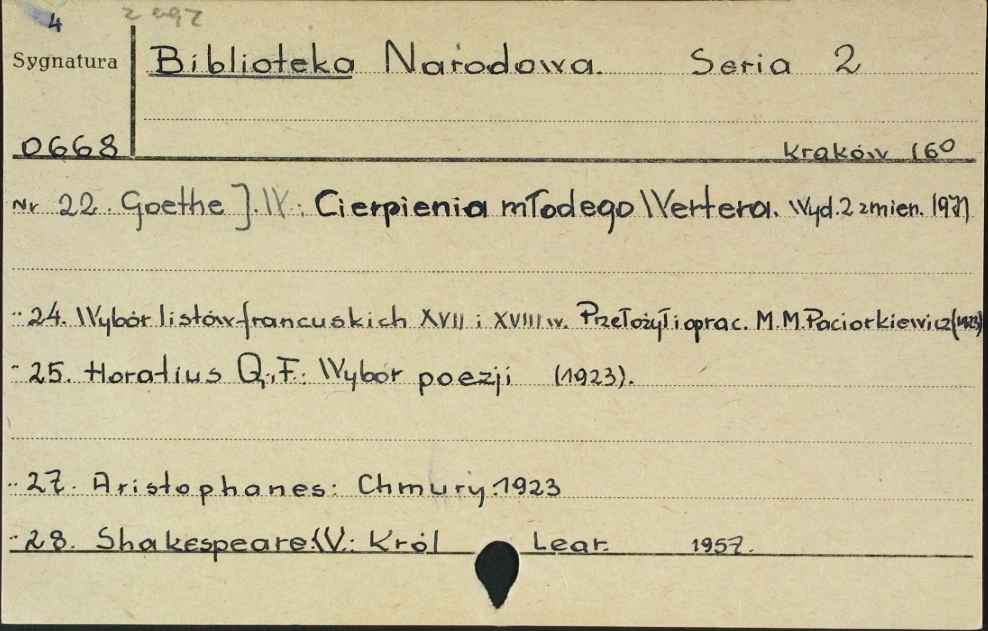 4
Sygnatura Biblioteka Narodowa. Seria 2
0668 Kraków 16°
Nr 22. Goethe J.W.: Cierpienia młodego Wertera. Wyd. 2 zmien.
" 24. Wybór listów francuskich XVII i XVIII w. Przełożył i oprac. M.M. Paciorkiewicz (1923)
" 25. Horatius Q.F.: Wybór poezji (1923).
" 27. Aristophanes: Chmury. 1923
" 28. Shakespeare W.: Król Lear. 1957.